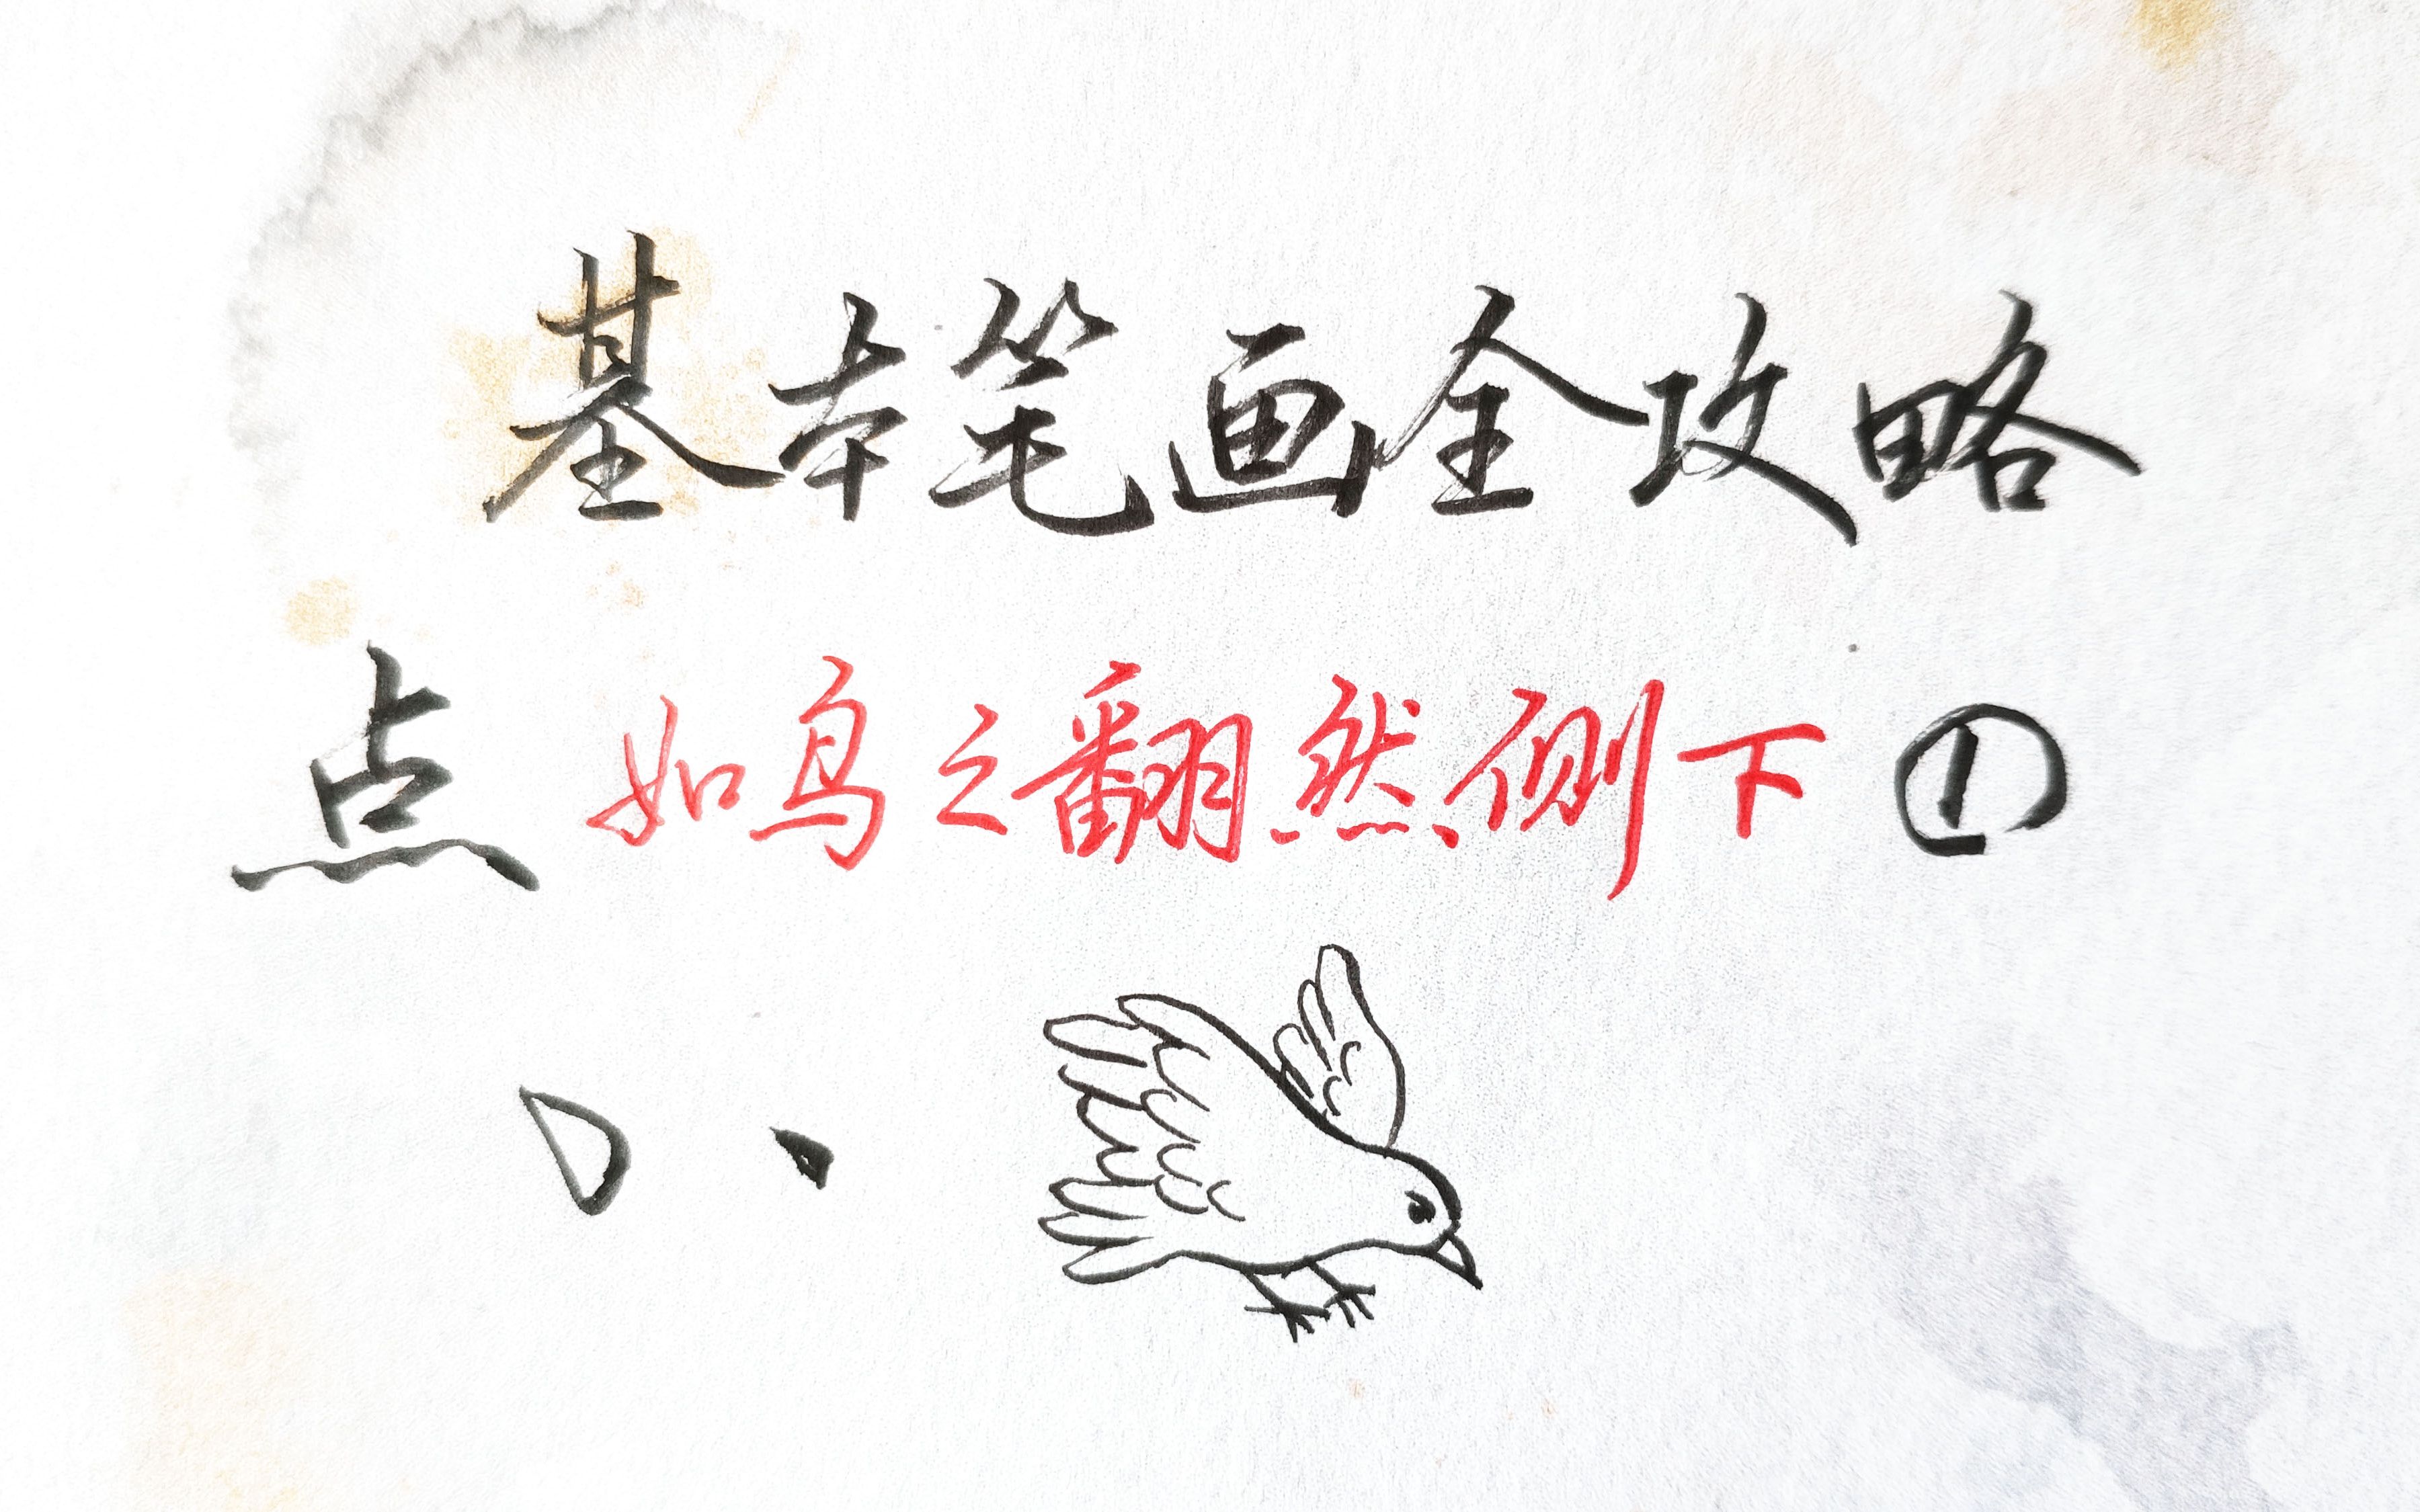 基本笔画全攻略
点 如鸟之翻然侧下 ①